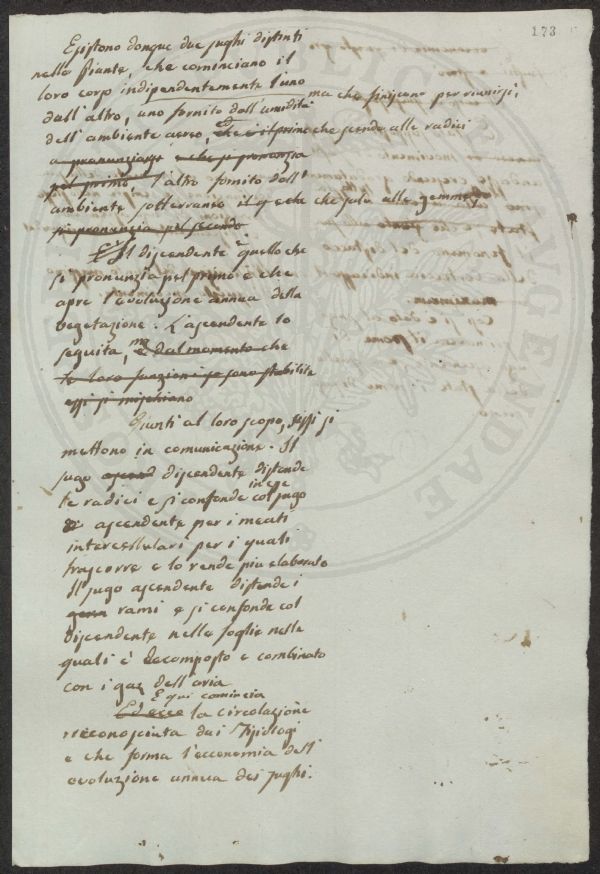 173
Esistono donque due sughi distinti
nella Piante, che cominciano il
loro corso indipendentemente l'uno
dall'altro, uno fornito dall'umidità ma che finiscono per riunirsi,
dell'ambiente aereo, che è il primo che scende alle radici
a pronunziarsi e che si pronunzia
pel primo, l'altro fornito dall'
ambiente sotterraneo il q e che che sale alle gemme
si pronunzia pel secondo
E' Il discendente quello che
si pronunzia pel primo e che
apre l'evoluzione annua della
vegetazione. L'ascendente lo
seguita, ma e dal momento che
le loro funzioni se sono stabilite
essi si mischiano
Giunti al loro scopo, essi si
mettono in comunicazione. Il
sugo ascend discendente distende
le radici e si confonde in esse col sugo
ascendente per i meati
intercellulari per i quali
trascorre e lo rende più elaborato
Il sugo ascendente distende i
rami e si confonde col
discendente nelle foglie nelle
quali è decomposto e combinato
con i gaz dell'aria
E qui comincia
Ed ecco la circolazione
riconosciuta dai Fisiologi
e che forma l'economia dell'
evoluzione annua dei sughi.